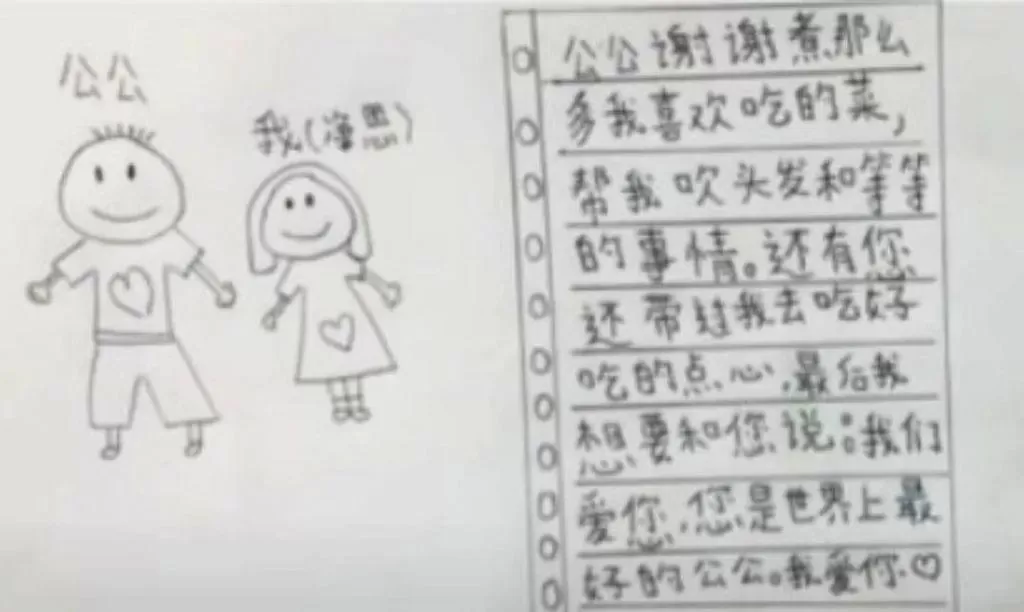 公公
我(净恩)
公公谢谢煮那么
多我喜欢吃的菜,
帮我吹头发和等等
的事情。还有您
还带过我去吃好
吃的点心,最后我
想要和您说:我们
爱您,您是世界上最
好的公公。我爱你♡